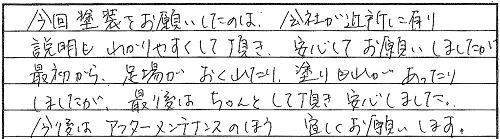 今回塗装をお願いしたのは、会社が近所に有り
説明もわかりやすくして頂き、安心してお願いしましたが
最初から、足場がおくれたり、塗りもれがあったり
しましたが、最後はちゃんとして頂き安心しました。
今後はアフターメンテナンスのほう宜しくお願いします。